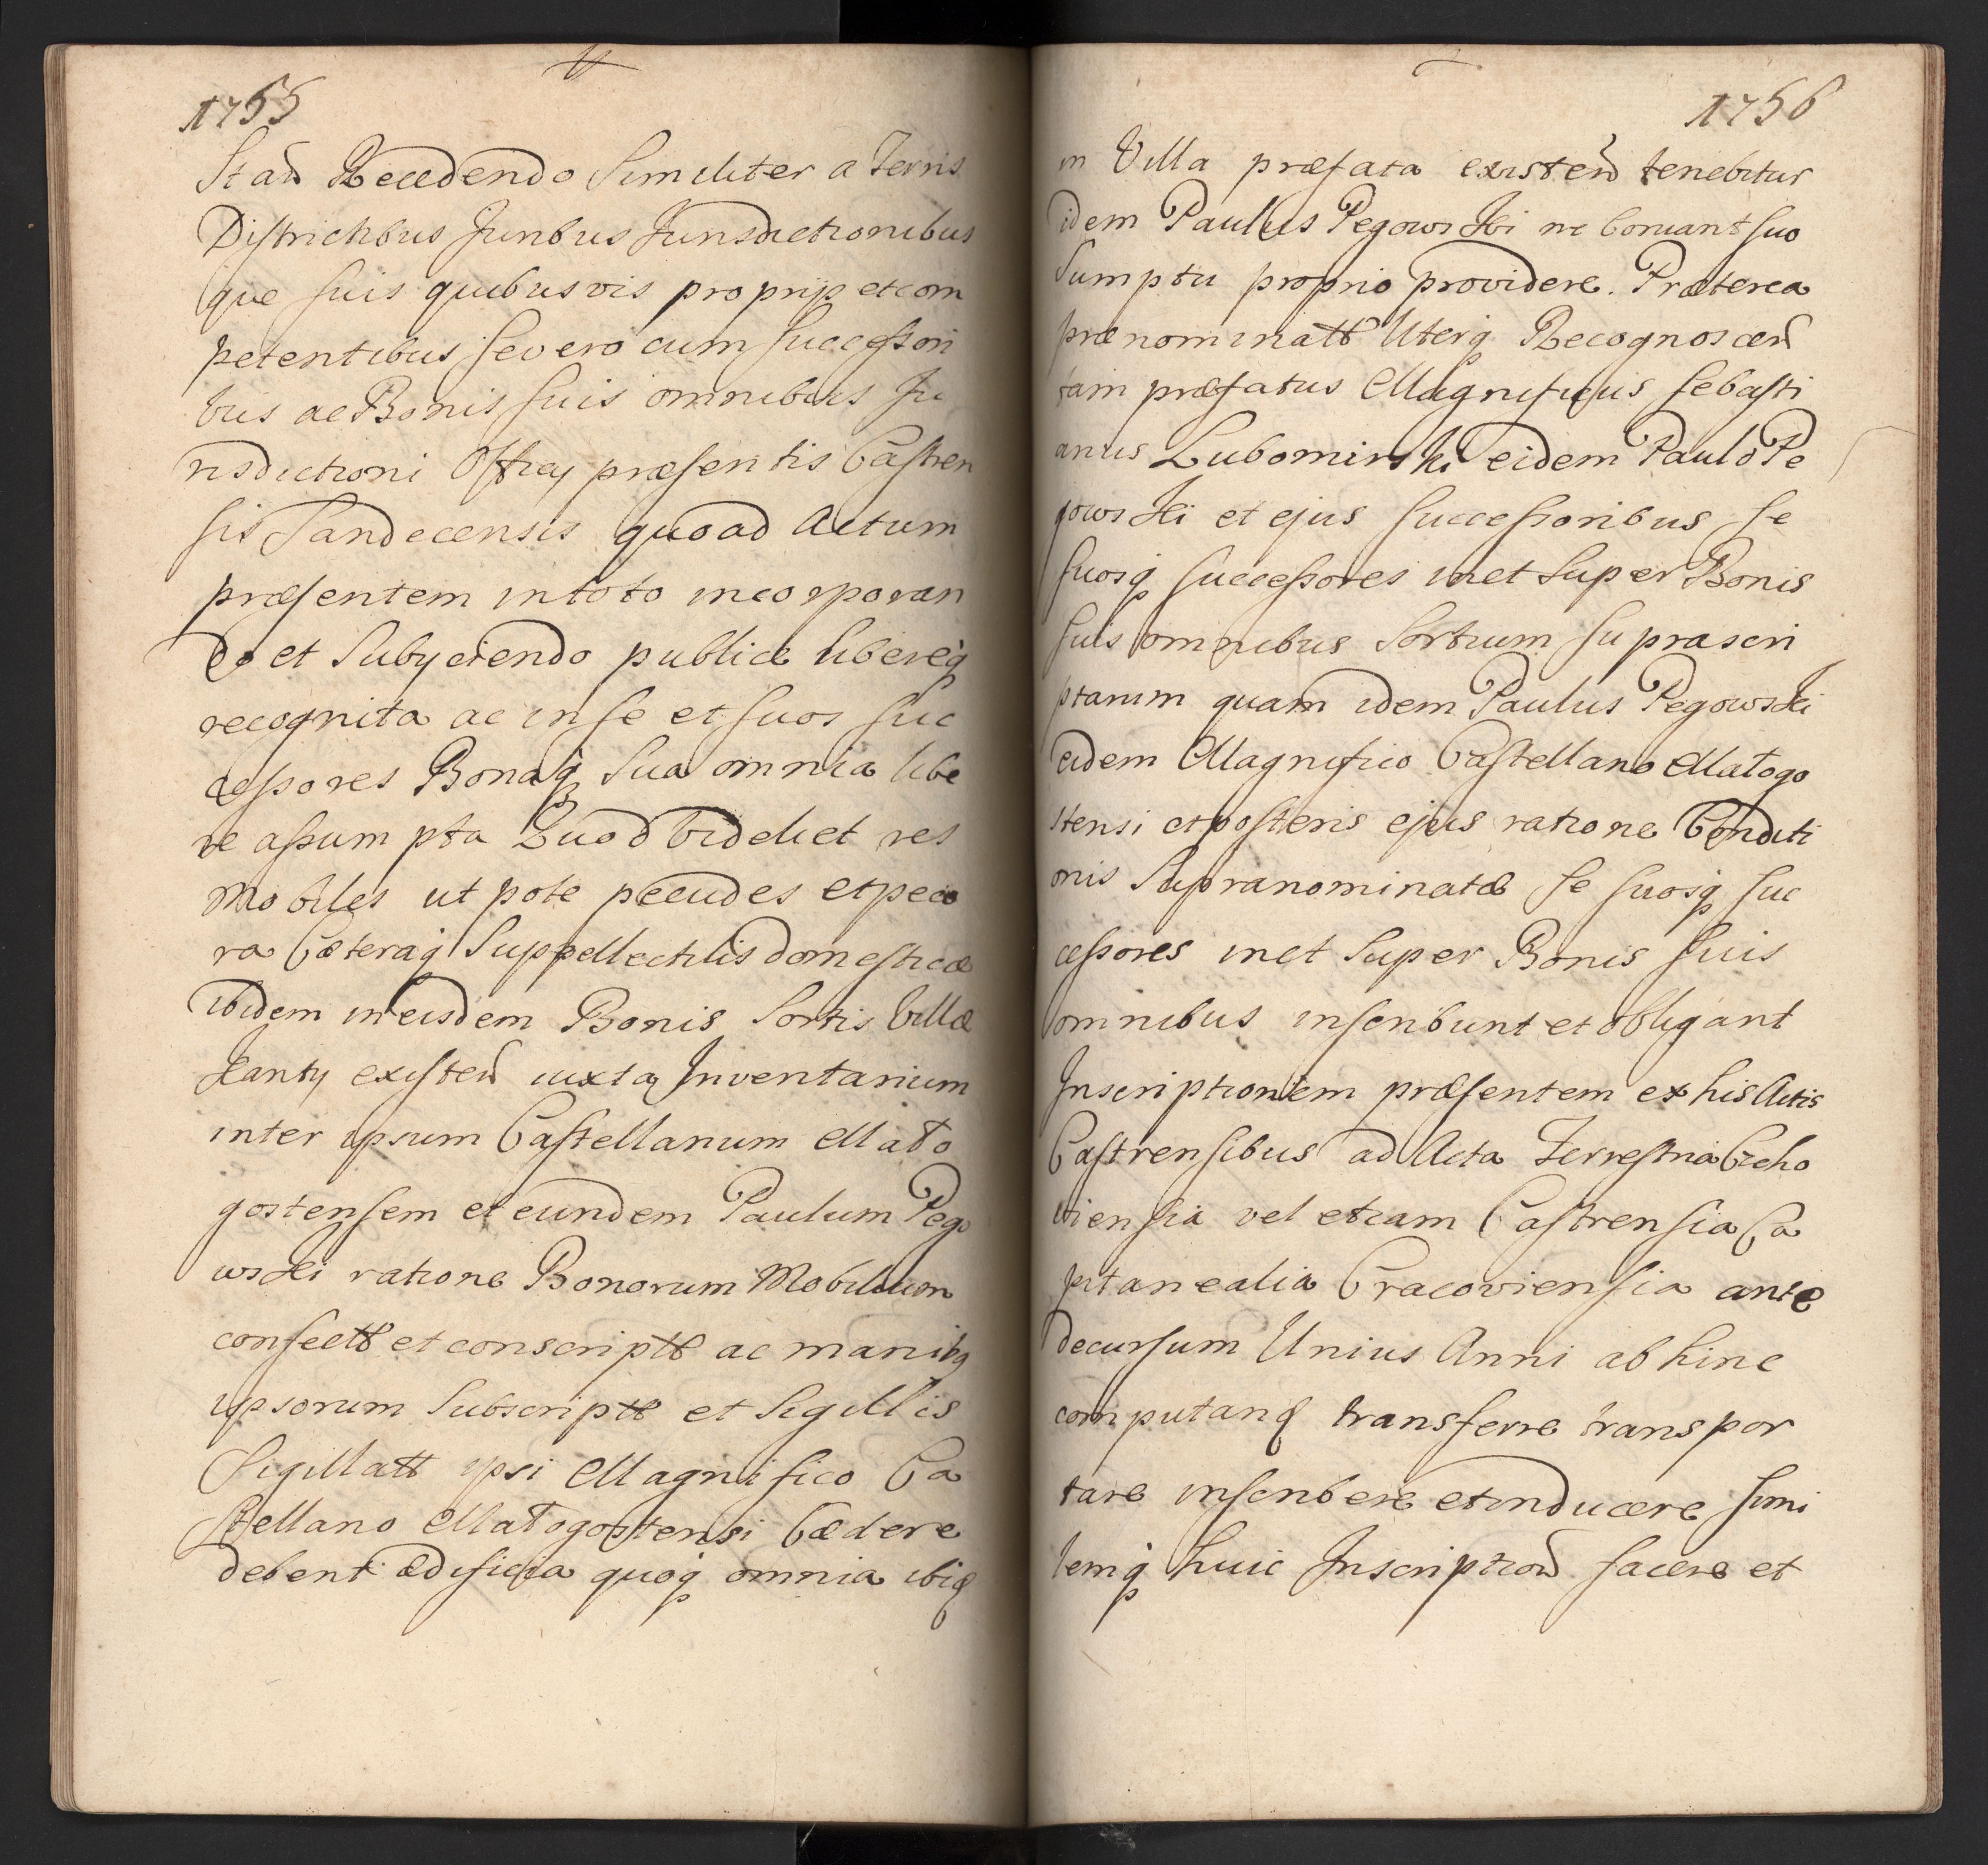 1755
Stan̄ Recedendo Similiter a Terris
Districtibus Juribus Jurisdictionibus
que suis quibusvis proprijs et com
petentibus se vero cum successori
bus ac Bonis suis omnibus Ju
risdictioni Officij præsentis Castren
sis Sandecensis quoad Actum
præsentem in toto incorporan
do et Subyciendo publice libereq
recognita ac in se et suos suc
cessores Bonaq sua omnia libe
re assumpta Quod videlicet res
Mobiles ut pote pecudes et peco
ra Cæteraq Suppellectilis domesticæ
ibidem in eisdem Bonis Sortis Villæ
existen̄ iuxta Inventarium
inter ipsum Castellanum Mało
gostensem et eundem Paulum Pego
wski ratione Bonorum Mobilium
confectt et conscriptt ac manibq
ipsorum Subscriptt et Sigillis
Sigillatt ipsi Magnifico Ca
stellano Małogostensi Cædere
debent ædificia quoq omnia ibiq
1756
in Villa præfata existen̄ tenebitur
idem Paulus Pegowski ne coruant suo
Sumptu proprio providere. Præterea
prænominatt Uterq Recognoscen̄
tam præfatus Magnificus Sebasti
anus Lubomirski eidem Paulo Pe
gowski et ejus successoribus se
suosq successores met super Bonis
suis omnibus Sortium suprascri
ptarum quam idem Paulus Pegowski
eidem Magnifico Castellano Małogo
stensi et posteris ejus ratione Conditi
onis Supranominatæ se suosq suc
cessores met super Bonis suis
omnibus inscribunt et obligant
Inscriptionem præsentem ex his Actis
Castrensibus ad Acta Terrestria Czcho
viensia vel etiam Castrensia Ca
pitanealia Cracoviensia ante
decursum Unius Anni ab hinc
computanđ transferre transpor
tare inscribere et inducere simi
lemq huic Inscription̄ facere et